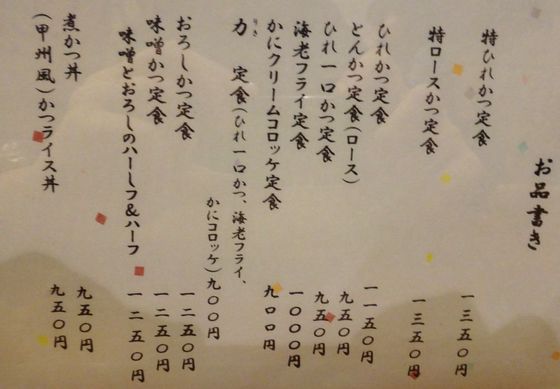 お品書き
特ひれかつ定食 一三五〇円
特ロースかつ定食 一三五〇円
ひれかつ定食 一一五〇円
とんかつ定食(ロース) 九五〇円
ひれ一口かつ定食 九五〇円
海老フライ定食 一〇〇〇円
かにクリームコロッケ定食 九〇〇円
力 定食(ひれ一口かつ、海老フライ、
りき
かにコロッケ)九〇〇円
おろしかつ定食 一二五〇円
味噌かつ定食 一二五〇円
味噌とおろしのハーしフ&ハーフ 一二五〇円
煮かつ丼 九五〇円
(甲州風)かつライス丼 九五〇円